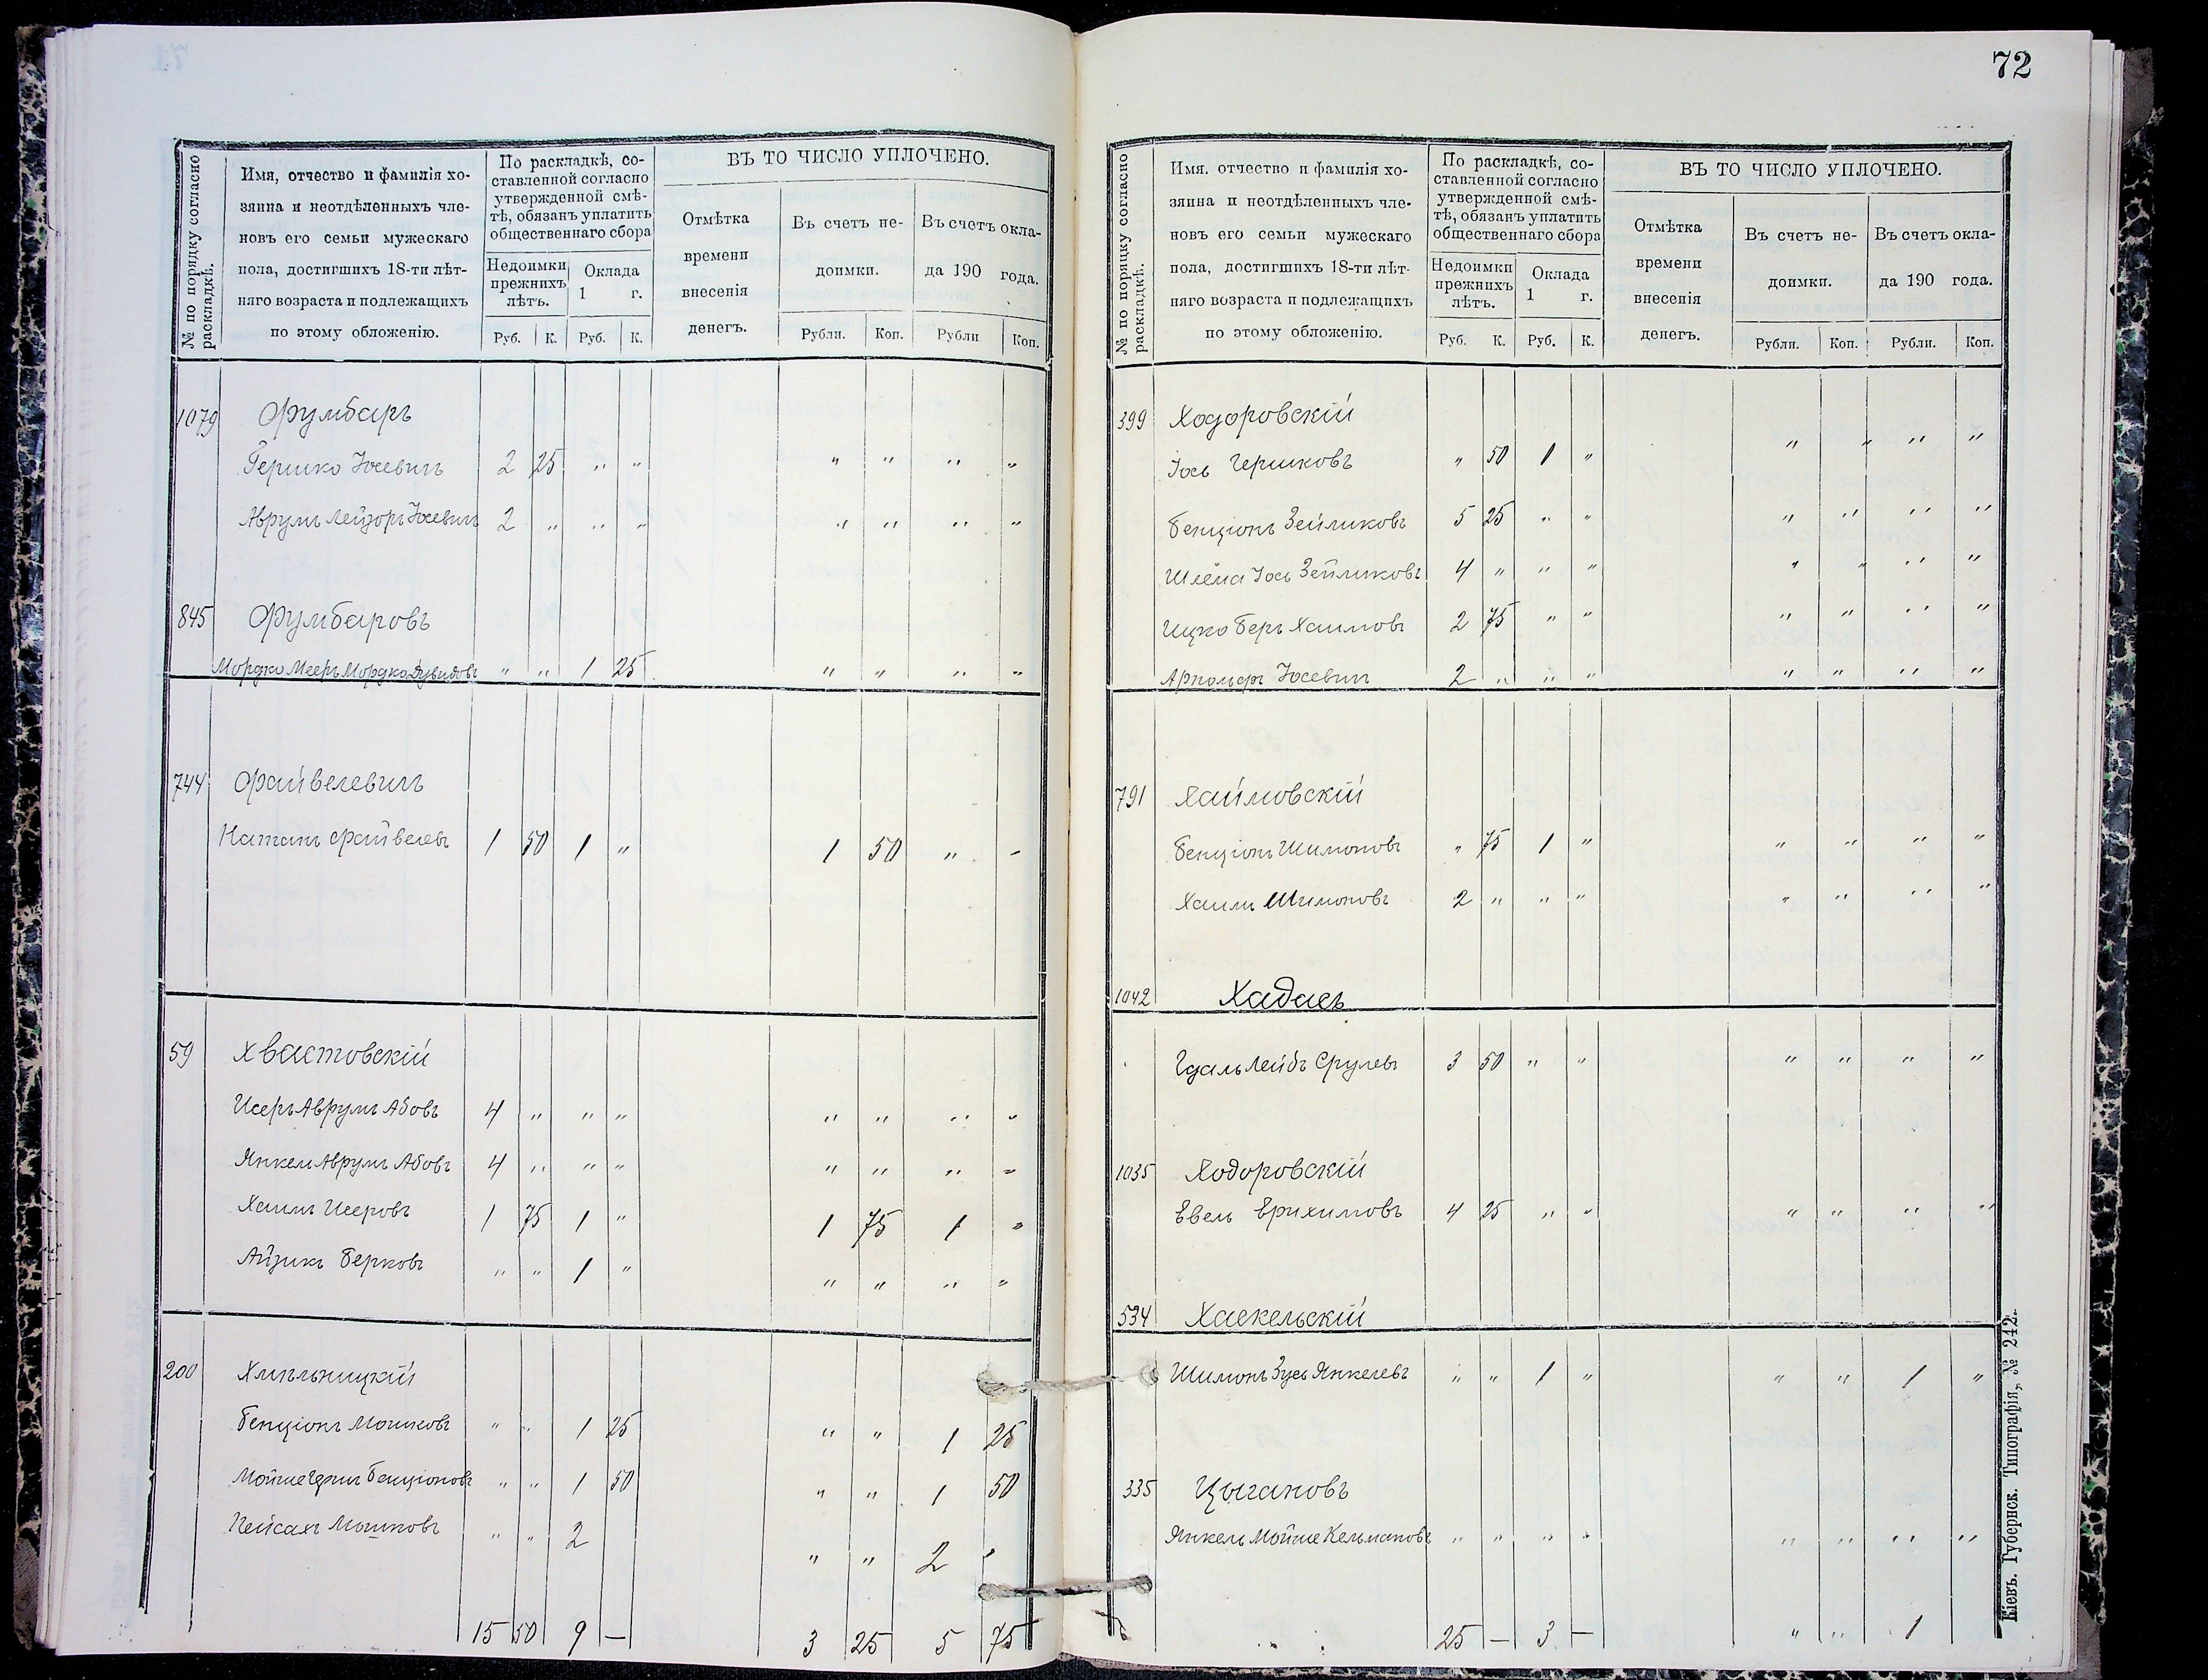 72
№ по порядку согласно раскладкѣ.
Имя, отчество и фамилія хо-
зяина и неотдѣленныхъ чле-
новъ его семьи мужескаго
пола, достигшихъ 18-ти лѣт-
няго возраста и подлежащихъ
по этому обложенію.
По раскладкѣ, со-
ставленной согласно
утвержденной смѣ-
тѣ, обязанъ уплатить
общественнаго сбора
Недоимки прежнихъ лѣтъ.
Оклада 1 г.
Руб. К. Руб. К.
ВЪ ТО ЧИСЛО УПЛОЧЕНО.
Отмѣтка времени внесенія денегъ.
Въ счетъ не- доимки.
Въ счетъ окла- да 190 года.
Рубли. Коп. Рубли Коп.
1079 Фумбаръ
Гершко Іосевичъ 2 25 " " " " " "
Аврумъ Лейзоръ Іосевичъ 2 " " " " " " "
845 Фумбаровъ
Мордко Мееръ Мордко Дувидовъ " " 1 25 " " " "
744 Файвелевичъ
Натанъ Файвелевъ 1 50 1 " 1 50 " "
59 Хвастовскій
Исеръ Аврумъ Абовъ 4 " " " " " " "
Янкель Аврумъ Абовъ 4 " " " " " " "
Хаимъ Исеровъ 1 75 1 " 1 75 1 "
Айзикъ Берковъ " " 1 " " " " "
200 Хмѣльницкій
Бенціонъ Мошковъ " " 1 25 " " 1 25
Мойше Бенціоновъ " " 1 50 " " 1 50
Пейсахъ Мошковъ " " 2 " " 2 "
15 50 9 — 3 25 5 75
№ по порядку согласно раскладкѣ.
Имя. отчество и фамилія хо-
зяина и неотдѣленныхъ чле-
новъ его семьи мужескаго
пола, достигшихъ 18-ти лѣт-
няго возраста и подлежащихъ
по этому обложенію.
По раскладкѣ, со-
ставленной согласно
утвержденной смѣ-
тѣ, обязанъ уплатить
общественнаго сбора
Недоимки прежнихъ лѣтъ.
Оклада 1 г.
Руб. К. Руб. К.
ВЪ ТО ЧИСЛО УПЛОЧЕНО.
Отмѣтка времени внесенія денегъ.
Въ счетъ не- доимки.
Въ счетъ окла- да 190 года.
Рубли. Коп. Рубли. Коп.
399 Ходоровскій
Іось Гершковъ " 50 1 " " " " "
Бенціонъ Зейликовъ 5 25 " " " " " "
Шлёма Іось Зейликовъ 4 " " " " " " "
Ицко Беръ Хаимовъ 2 75 " " " " " "
Іосевичъ 2 " " " " " " "
791 Хаймовскій
Бенціонъ Шимоновъ " 75 1 " " " " "
Хаимъ Шимоновъ 2 " " " " " " "
1042 Хадаеъ
Гдаль Лейбъ Срулевъ 3 50 " " " " " "
1035 Ходоровскій
Евель Ерихимовъ 4 25 " " " " " "
534 Хаскельскій
Шимонъ Зусь Янкелевъ " " 1 " " " 1 "
335 Цыгановъ
Янкель Мойше Кельмановъ " " " " " " " "
25 — 3 — " " 1
Кіевъ. Губернск. Типографія, № 242.